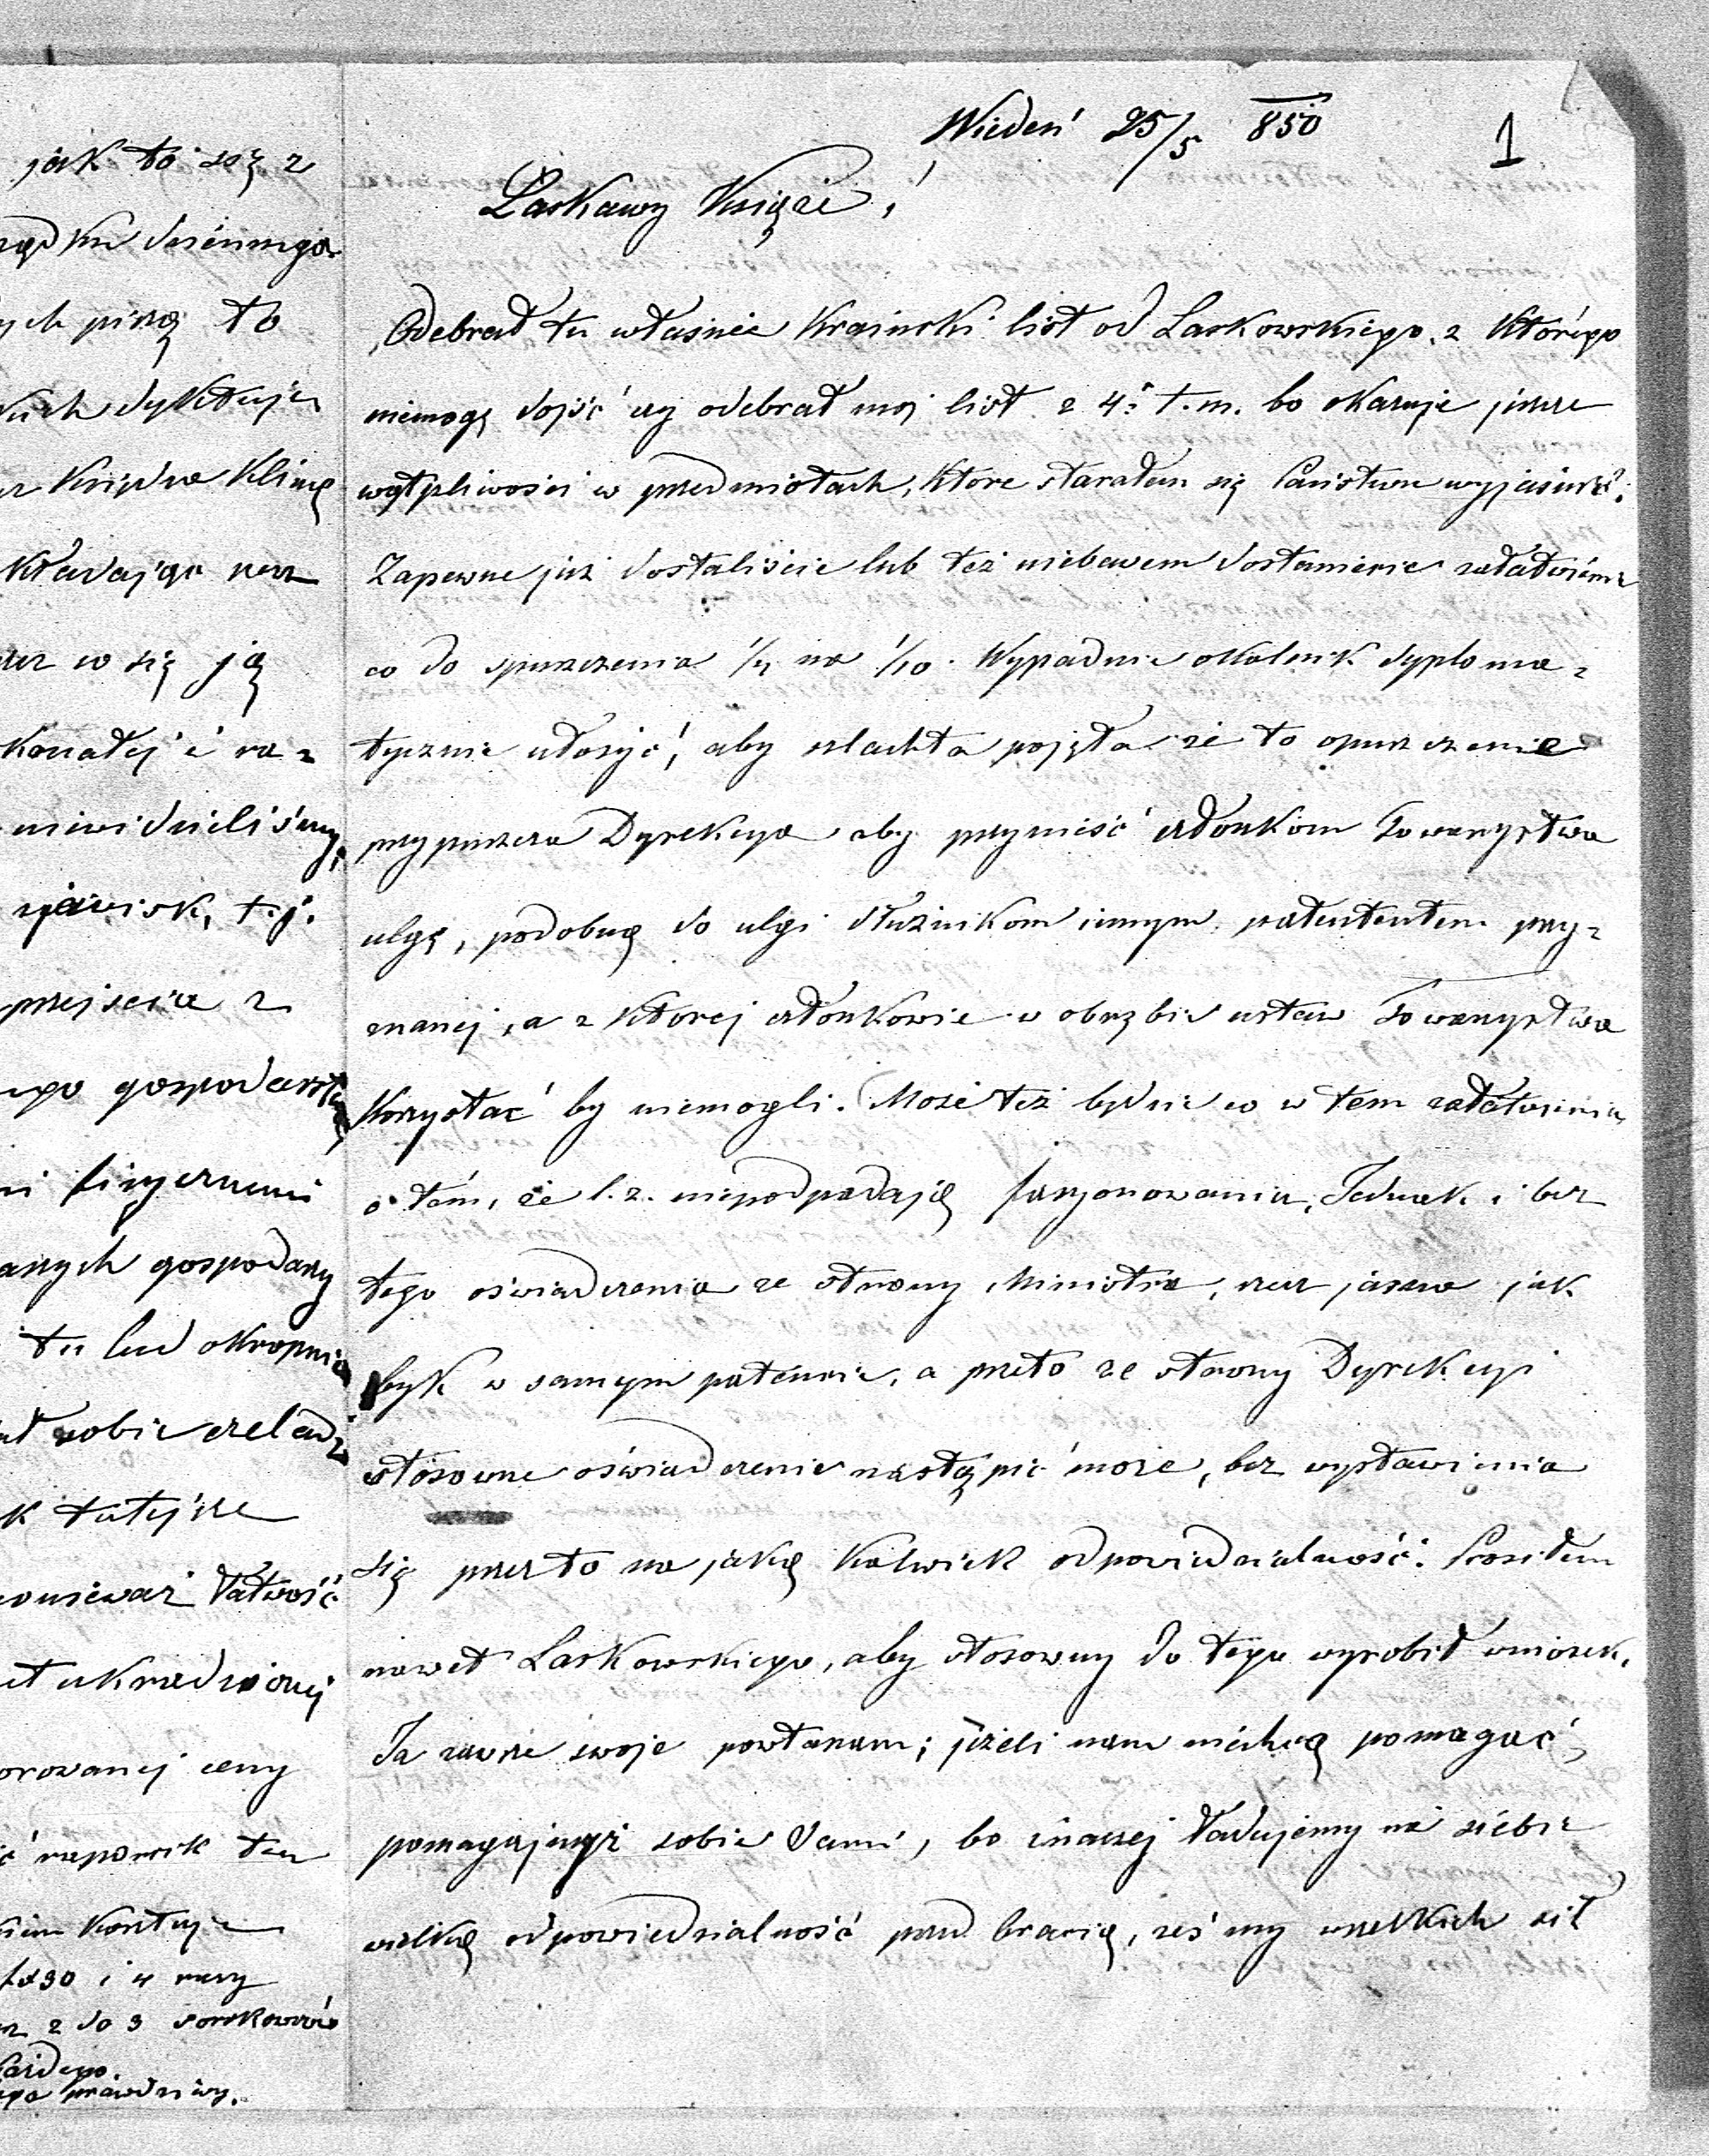 jak to się z
ządku dziennego
ych piszą to
dyktuje
Klimę
kładając
w się ją
konałej i ra=
niewidzieliśmy,
zjawisk, t.j.
przejscia z
ego gospodarstwa
ni fizycznemi
anych gospodarzy
tu lud okropnie
sobie czeladź
k tutejsze
ponieważ łatwość
et ukradzionej
orowanej ceny
ć rzepownik ten
kosztuje
30 i 4 razy
2 do 3
każdego.
prawdziwy.
Wiedeń 25/5 850
1
Łaskawy Książe!
Odebrał tu właśnie Krainski list od Laskowskiego, z którego
niemogę dojść czy odebrał moj list z 4º t.m. bo okazuje jeszcze
wątpliwości w przedmiotach, ktore starałem się Państwu wyjaśnić.
Zapewne już dostaliście lub też niebawem dostaniecie załatwienie
co do spuszczenia 1/4 na 1/10. Wypadnie okolnik dyploma=
tycznie ułożyć, aby szlachta pojęła że to opuszczenie
przypuszcza Dyrekcya aby przynieść członkom Towarzystwa
ulgę, podobną do ulgi dłużnikom innym patentem przy=
znanej, a z ktorej członkowie w obrębie ustaw Towarzystwa
korzystać by niemogli. Może też będzie co w tem załatwieniu
o tém, że l. z. niepodpadają fasyonowaniu, Jednak i bez
tego oświadczenia ze strony Ministra, rzecz jasna jak
byk w samym patencie, a przeto ze strony Dyrekcyi
stósowne oświadczenie nastąpić może, bez wystawienia
się przez to na jaką kolwiek odpowiedzialność. Prosiłem
nawet Laskowskiego, aby stosowny do tego wyrobił wniosek.
Ja zawsze swoje powtarzam; jeżeli nam niechcą pomagać,
pomagajmyż sobie sami, bo inaczej ładujemy na siebie
wielką odpowiedzialność przed bracią, żeśmy wszelkich sił